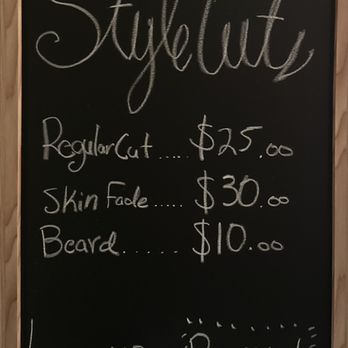 Style Cuts
Regular Cut ..... $25.00
Skin Fade ..... $30.00
Beard ...... $10.00